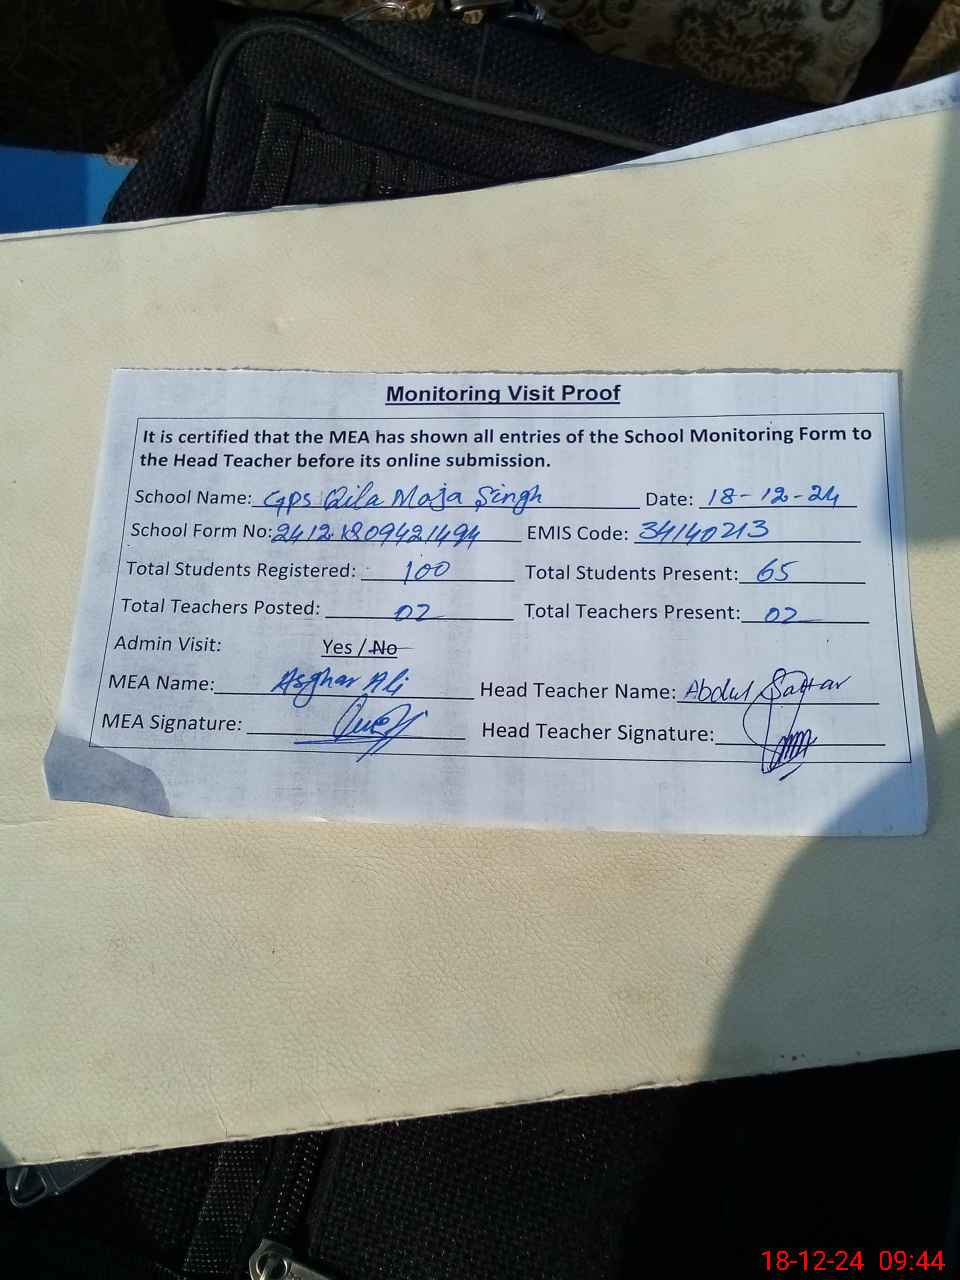 Monitoring Visit Proof
It is certified that the MEA has shown all entries of the School Monitoring Form to
the Head Teacher before its online submission.
School Name: GPS Qila Moja Singh Date: 18-12-24
School Form No: 24121809421494 EMIS Code: 34140213
Total Students Registered: 100 Total Students Present: 65
Total Teachers Posted: 02 Total Teachers Present: 02
Admin Visit: Yes / No
MEA Name: Asghar Ali Head Teacher Name: Abdul Sattar
MEA Signature: Head Teacher Signature:
18-12-24 09:44